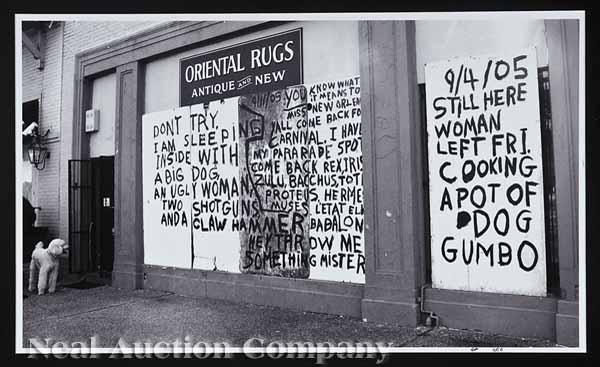 ORIENTAL RUGS
ANTIQUE AND NEW
DONT TRY
I AM SLEEPING
INSIDE WITH
A BIG DOG
AN UGLY WOMAN
TWO SHOTGUNS
AND A CLAW HAMMER
9/11/05 YOU KNOW WHAT
IT MEANS TO
MISS NEW ORLEA
YALL COME BACK FO
CARNIVAL. I HAVE
MY PARARADE SPOT
COME BACK REX IRIS
ZULU, BACCHUS TOTH
PROTEUS, HERME
MOSES, L'ETAT EL
BABALON
THEY THROW ME
SOMETHING MISTER
9/4/05
STILL HERE
WOMAN
LEFT FRI.
COOKING
A POT OF
DOG
GUMBO
Neal Auction Company